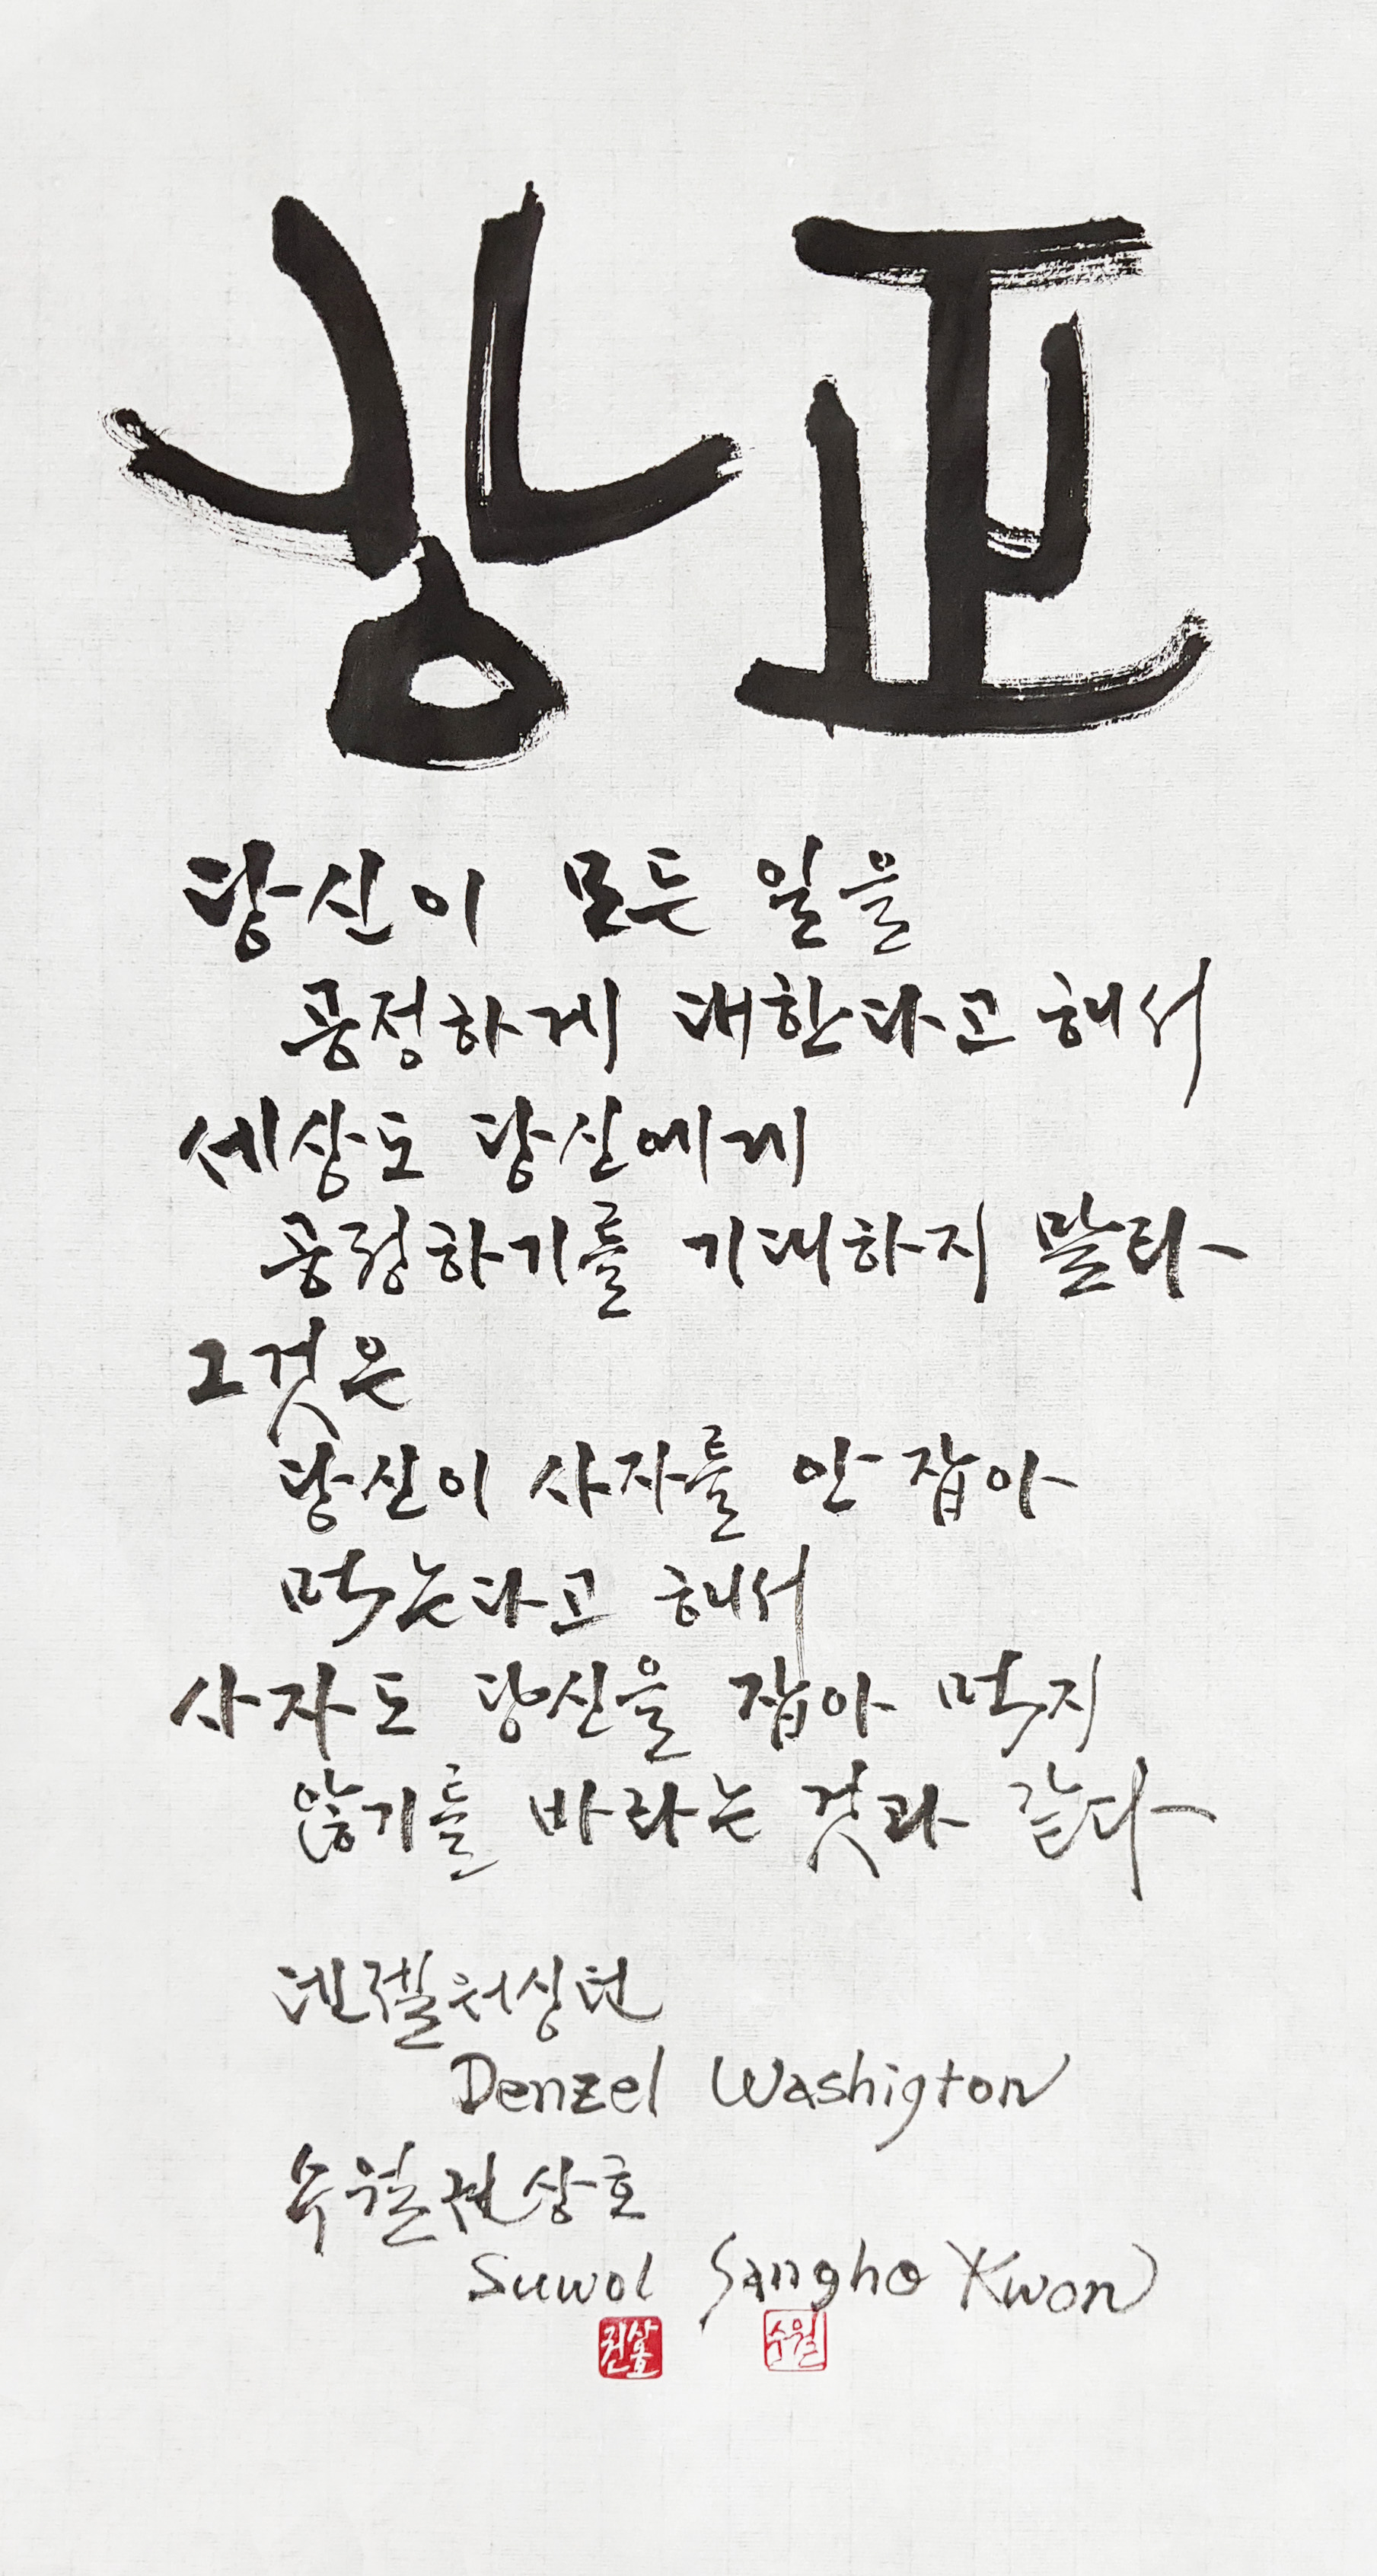 公正
당신이 모든 일을
공정하게 대한다고 해서
세상도 당신에게
공정하기를 기대하지 말라
그것은
당신이 사자를 안 잡아
먹는다고 해서
사자도 당신을 잡아 먹지
않기를 바라는 것과 같다
덴젤워싱턴
Denzel Washigton
수월권상호
Suwol Sangho Kwon
권상호 수월